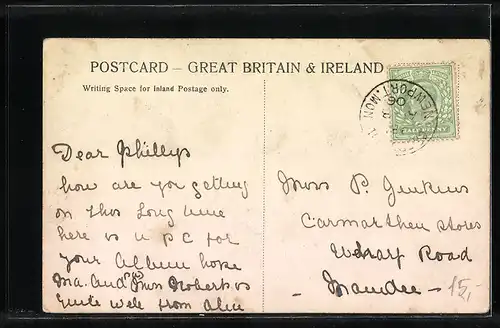 POSTCARD – GREAT BRITAIN & IRELAND
Writing Space for Inland Postage only.
Dear Phillys
how are you getting
on this Long time
here is a P C for
your Album hope
Ma. and Mrs Roberts is
quite well from Alice
NEWPORT. MON
HALFPENNY
Miss P. Jenkins
Carmarthen Stores
Wharf Road
- Maindee -
15,-